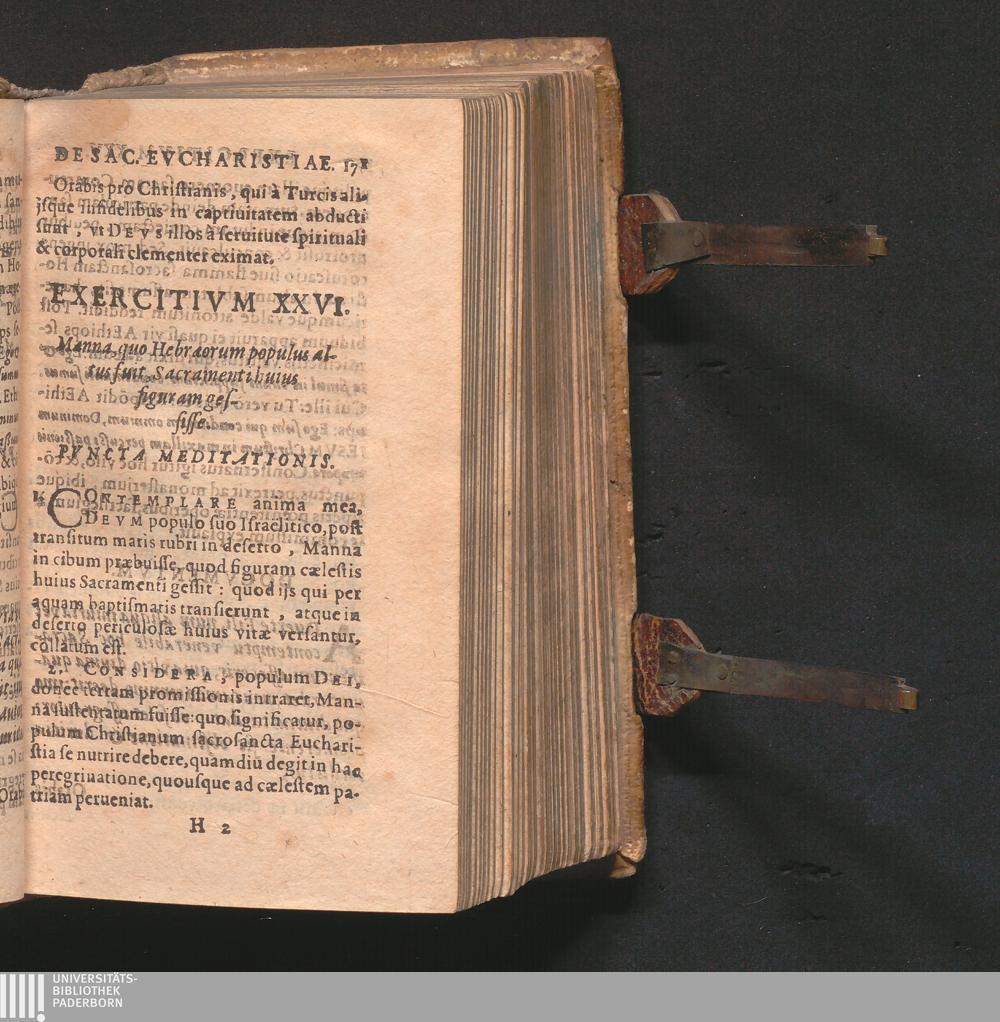 DE SAC. EVCHARISTIAE. 171
Orabis pro Christianis, qui à Turcis ali-
jsque infidelibus in captiuitatem abducti
sunt, vt DEVS illos à seruitute spirituali
& corporali clementer eximat.
EXERCITIVM XXVI.
Manna, quo Hebræorum populus al-
tus fuit, Sacramenti huius
figuram ges-
sisse.
PVNCTA MEDITATIONIS.
1. CONTEMPLARE anima mea,
DEVM populo suo Israëlitico, post
transitum maris rubri in deserto, Manna
in cibum præbuisse, quod figuram cælestis
huius Sacramenti gessit: quod ijs qui per
aquam baptismatis transierunt, atque in
deserto periculosæ huius vitæ versantur,
collatum est.
2. CONSIDERA, populum DEI,
donec terram promissionis intraret, Man-
na sustentatum fuisse: quo significatur, po-
pulum Christianum sacrosancta Euchari-
stia se nutrire debere, quamdiu degit in hac
peregrinatione, quousque ad cælestem pa-
triam perueniat.
H 2
UNIVERSITÄTS-
BIBLIOTHEK
PADERBORN